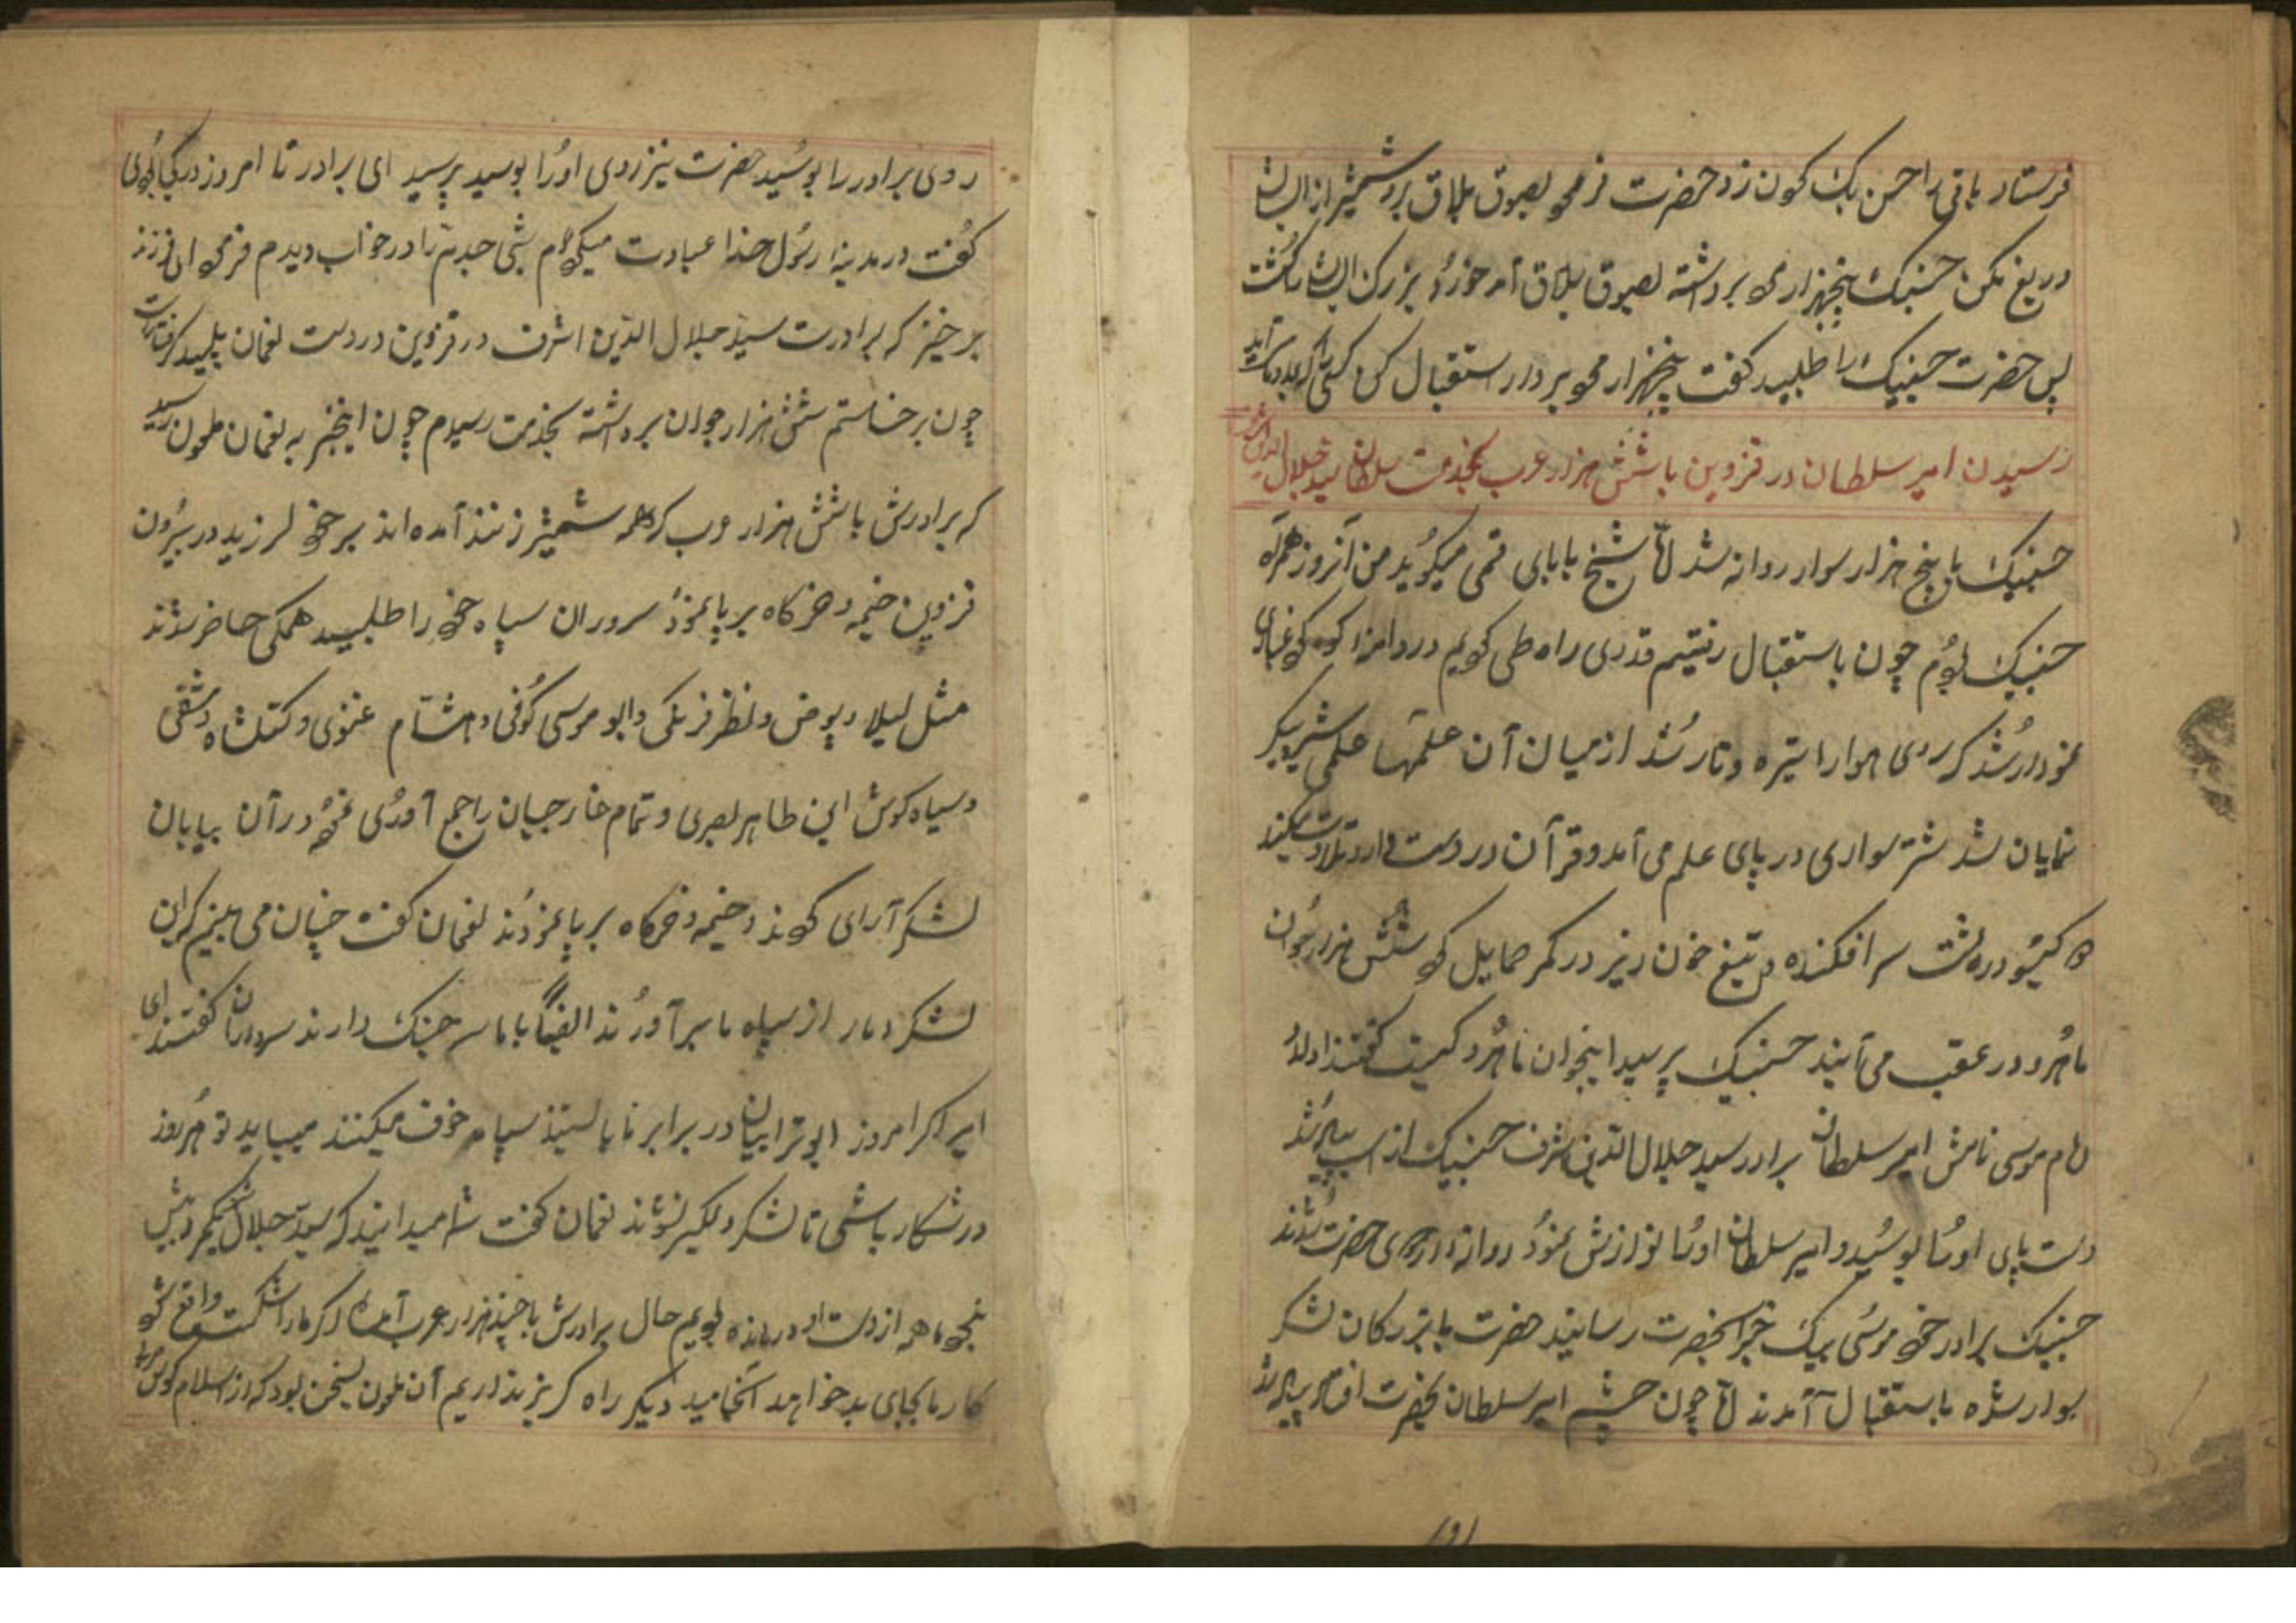 فرستاد باقی را حسن بک کون زد حضرت فرمود بصوق بلاق برو شمشیر از ایشان
دریغ مکن حسنبک پنجهزار مرد برداشته بصوق بلاق آمد خورد بزرگ ایشانرا کشت
پس حضرت حسنبک را طلبید کفت پنجهزار مرد بردار استقبال کن کسی را که بمدد ما میآید
رسیدن امیر سلطان در قزوین با شش هزار عرب بخدمت سلطان سید جلال الدین اشرف
حسنبک با پنج هزار سوار روانه شد شیخ بابای قمی میکوید من آنروز همراه
حسنبک بودم چون باستقبال رفتیم قدری راه طی کردیم در دامنه کوه کرد غباری
نمودار شد که روی هوا را تیره و تار شد از میان آن علمها علمی شیر پیکر
نمایان شد شتر سواری در پای علم می آمد و قرآن در دست دارد تلاوت میکند
دو کیسو در پشت سر افکنده و تیغ خون ریز در کمر حمایل کرد شش هزار جوان
ماهرو در عقب می آیند حسنبک پرسید اینجوان ماهرو کیست کفتند اولاد
امام موسی نامش امیر سلطان برادر سید جلال الدین اشرف حسنبک از اسب پیاده شد
دست پای او را بوسید و امیر سلطان او را نوازش نمود روانه اردوی حضرت شدند
حسنبک برادر خود موسی بیک خبر بحضرت رسانید حضرت با بزرکان لشکر
سوار شده باستقبال آمدند چون چشم امیر سلطان بحضرت افتاد پیاده شد
روی برادر را بوسید حضرت نیز روی او را بوسید پرسید ای برادر تا امروز در کجا بودی
کفت در مدینه رسول خدا عبادت میکردم شبی جدم را در خواب دیدم فرمود ای فرزند
برخیز که برادرت سید جلال الدین اشرف در قزوین در دست لغمان پلید کرفتار است
چون برخاستم شش هزار جوان برداشته بخدمت رسیدم چون اینخبر به لغمان ملعون رسید
که برادرش با شش هزار عرب که همه شمشیر زنند آمده اند بر خود لرزید در بیرون
قزوین خیمه و خرکاه بر پا نمود سروران سپاه خود را طلبید همکی حاضر شدند
مثل لیلا و پوض و نظر فرنکی و ابو موسی کوفی و هشام عنوی و کتکشاه دمشقی
و سیاه کوش ابن طاهر بصری و تمام خارجیان را جمع آوری نمود در آن بیابان
لشکر آرای کردند و خیمه و خرکاه بر پا نمودند لغمان کفت چنان می بینم که این
لشکر دمار از سپاه ما برآورند ایضا با ما سر جنک دارند سرداران کفتند ای
امیر اکر امروز ابوترابیان در برابر ما بایستند سپاه خوف میکنند میباید تو هر روز
در شکار باشی تا لشکر دلکیر نشوند لغمان کفت شما میدانید که سید جلال یکمرد بیش
نبود ما همه از دست او درمانده بودیم حال برادرش با چند هزار عرب آمده اکر ما را شکست واقع شود
کار ما بجای بد خواهد انجامید دیکر راه کریز نداریم آن ملعون بسخن بود که از اسلام کوس حربی